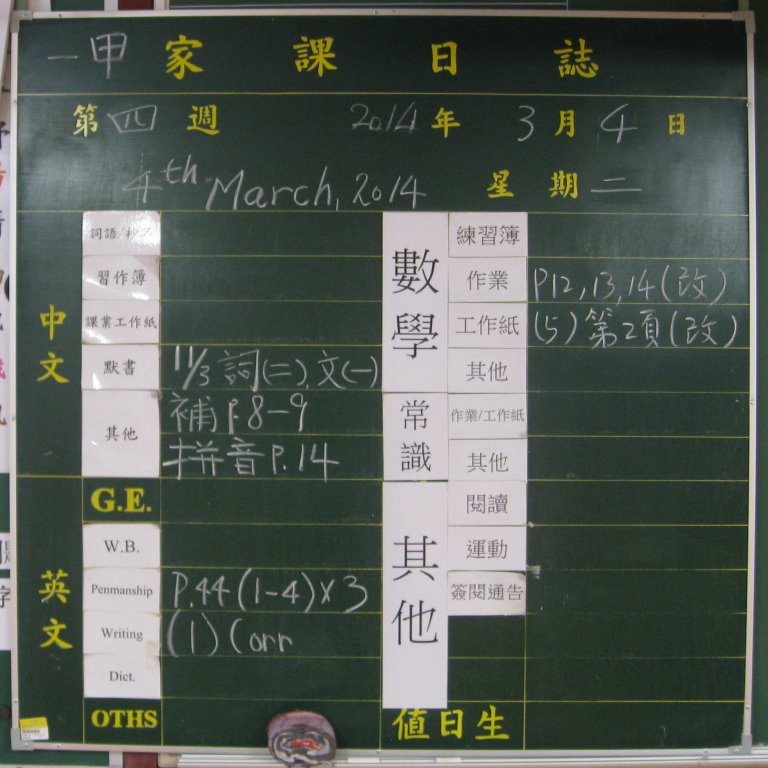 一甲家課日誌
第四週 2014年3月4日
4th March, 2014 星期二
中文
詞語/
習作簿
課業工作紙
默書 11/3 詞(二)、文(一)
其他 補 P.8-9
拼音 P.14
英文
G.E.
W.B.
Penmanship P.44 (1-4) x 3
Writing (1) Corr
Dict.
OTHS
數學
練習簿
作業 P12, 13, 14 (改)
工作紙 (5) 第2頁 (改)
其他
常識
作業/工作紙
其他
其他
閱讀
運動
簽閱通告
值日生